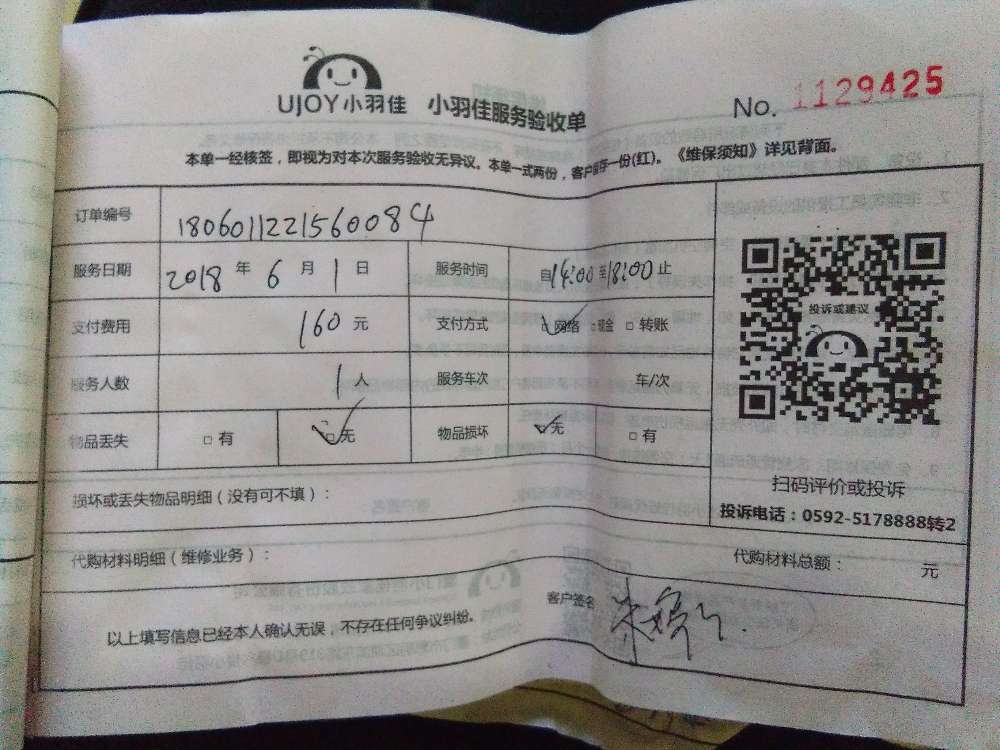 UJOY小羽佳 小羽佳服务验收单 No. 1129425
本单一经核签，即视为对本次服务验收无异议。本单一式两份，客户留存一份(红)。《维保须知》详见背面。
订单编号 1806011221560084
服务日期 2018 年 6 月 1 日 服务时间 自14:00至18:00止
支付费用 160 元 支付方式 ☑网络 □现金 □转账
服务人数 1 人 服务车次 车/次
物品丢失 □有 ☑无 物品损坏 ☑无 □有
投诉或建议
扫码评价或投诉
投诉电话：0592-5178888转2
损坏或丢失物品明细（没有可不填）：
代购材料明细（维修业务）： 代购材料总额： 元
以上填写信息已经本人确认无误，不存在任何争议纠纷。 客户签名